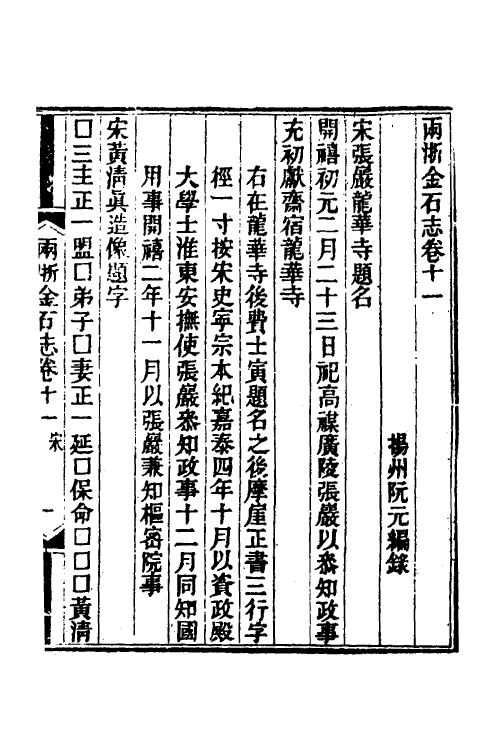 兩浙金石志卷十一
揚州阮元編錄
宋張嚴龍華寺題名
開禧初元二月二十三日祀高禖廣陵張嚴以叅知政事
充初獻齋宿龍華寺
右在龍華寺後費士寅題名之後摩崖正書三行字
徑一寸按宋史寧宗本紀嘉泰四年十月以資政殿
大學士淮東安撫使張嚴叅知政事十二月同知國
用事開禧二年十一月以張嚴兼知樞密院事
宋黃淸眞造像題字
□三主正一盟□弟子□妻正一延□保命□□□黃淸
兩浙金石志卷十一 宋 一